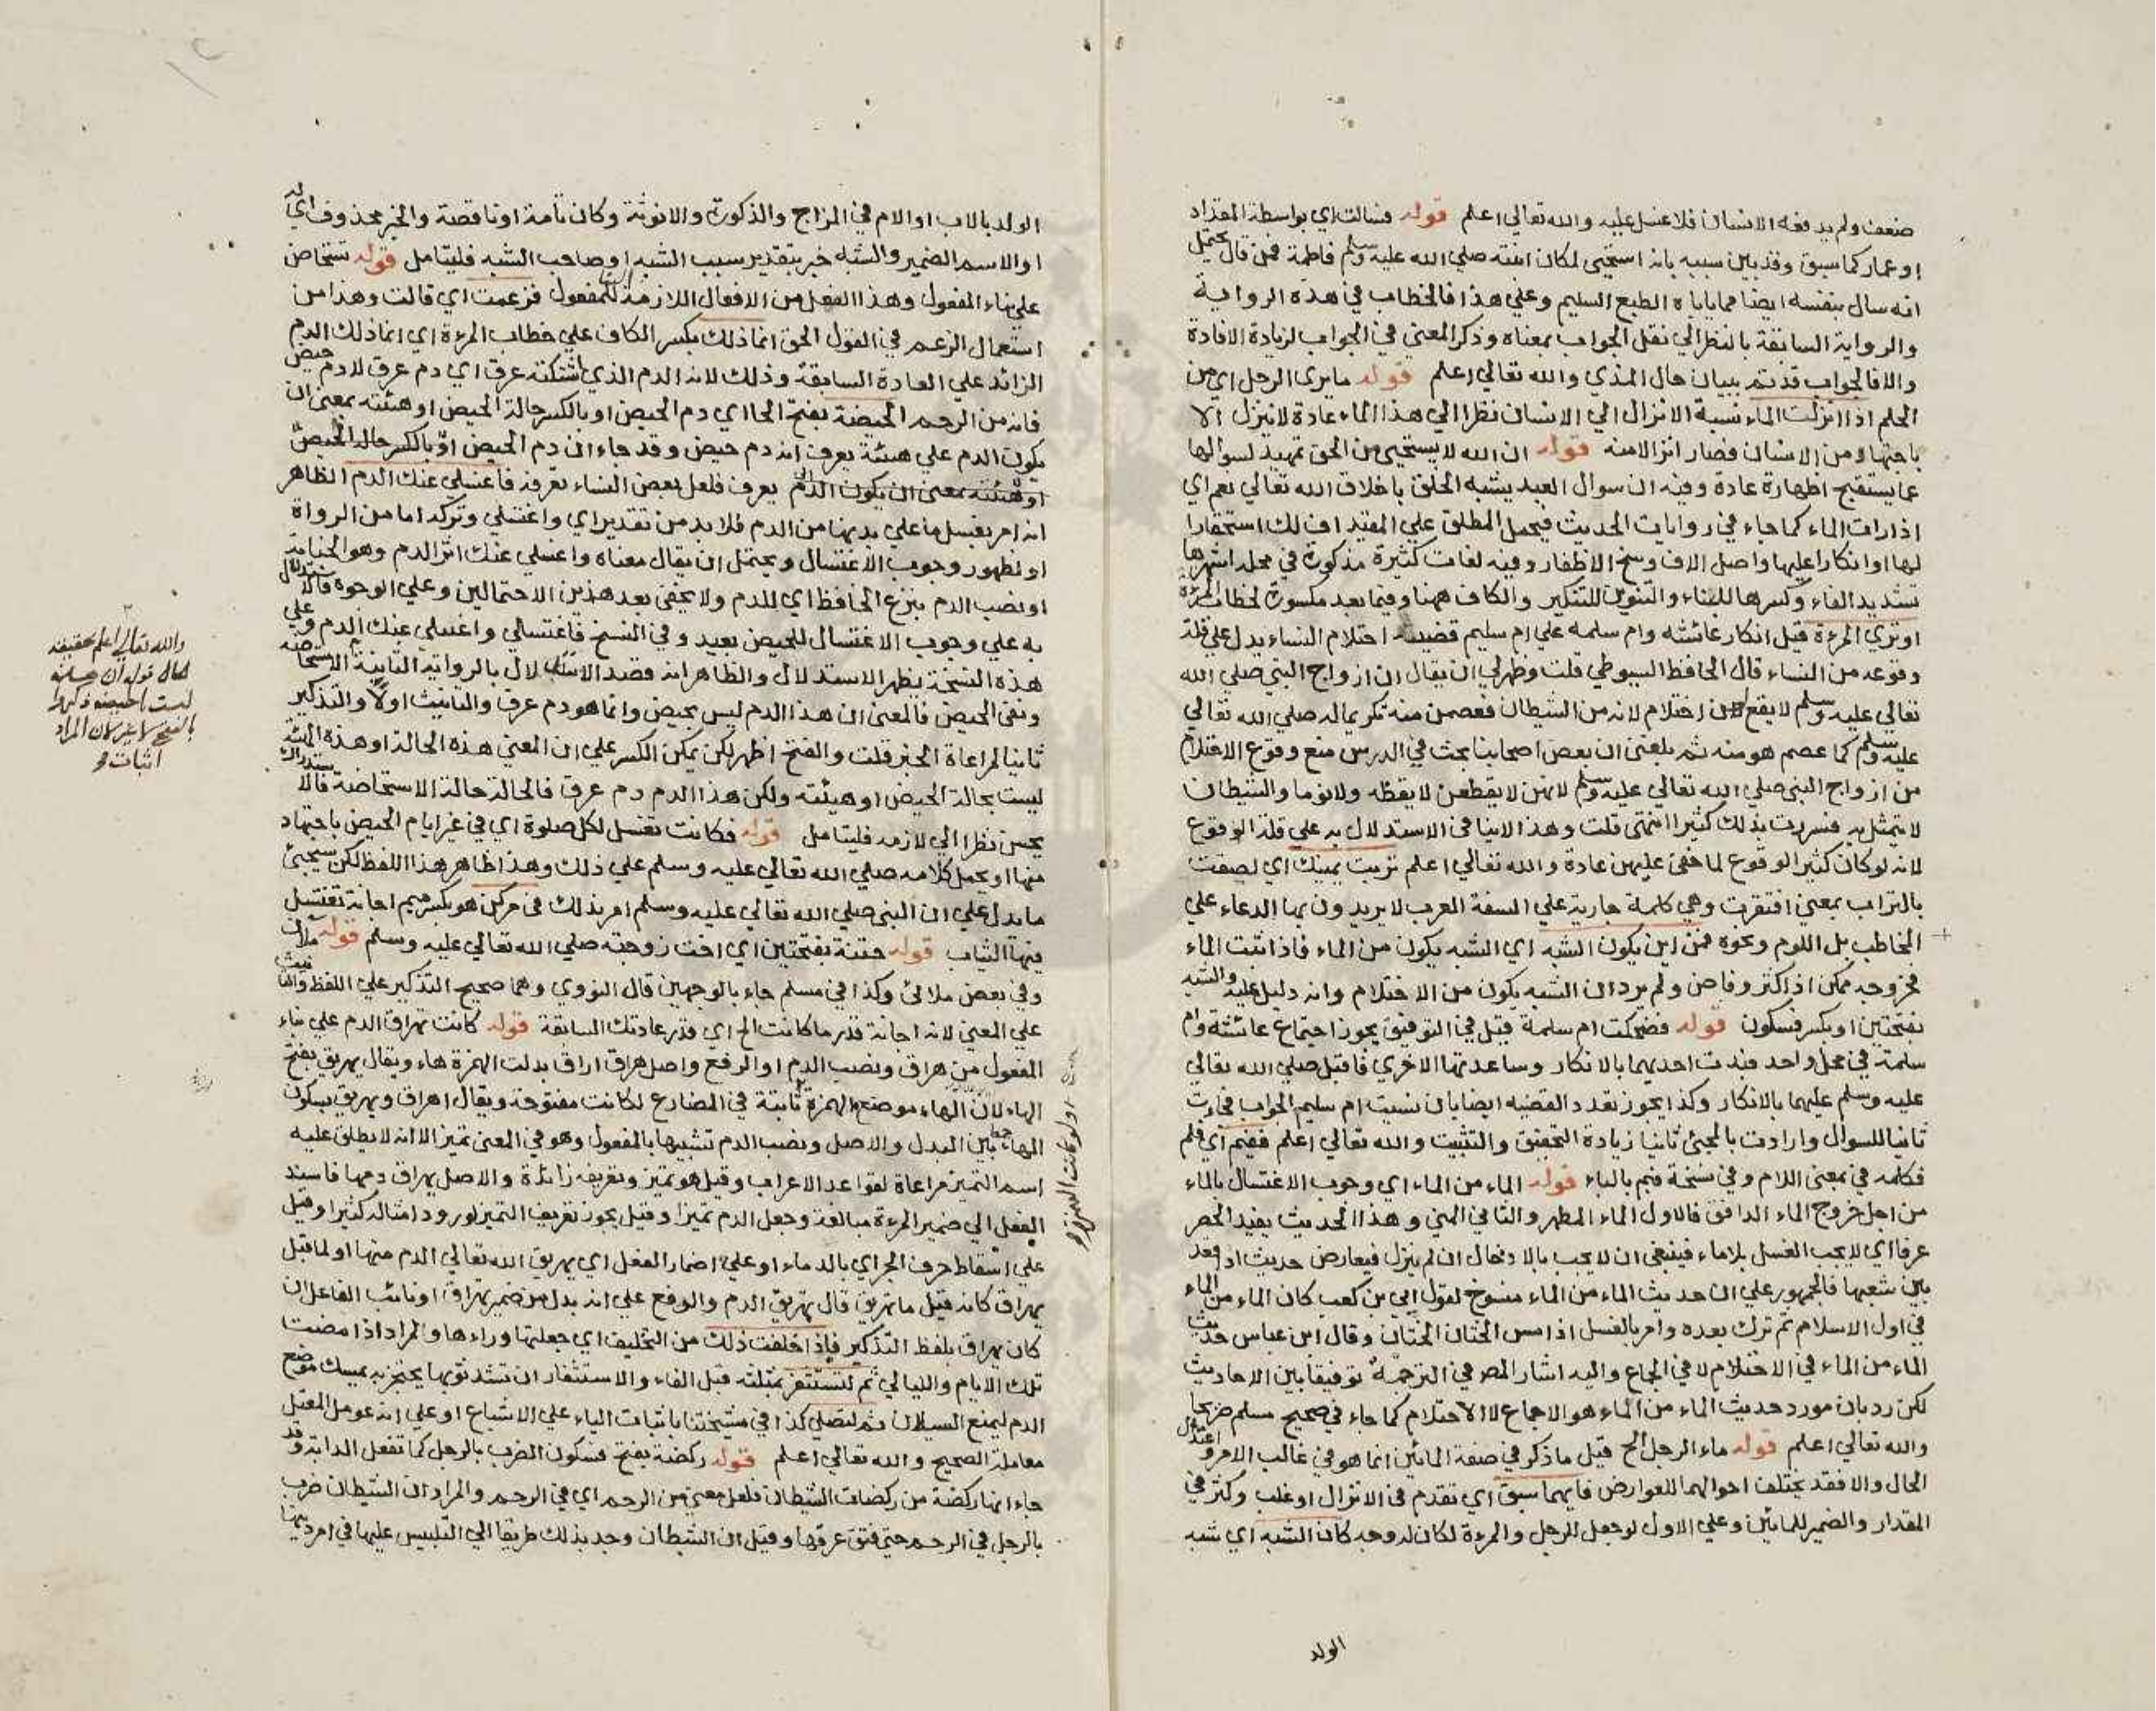 ضعف ولم يدفعه الانسان فلا غسل عليه والله تعالى اعلم قوله فسالت اي بواسطة المقداد
او عمار كما سبق وقد بين سببه بانه استحيى لمكان ابنته صلي الله عليه وسلم فاطمة فمن قال يحتمل
انه سال بنفسه ايضا مما ياباه الطبع السليم وعلي هذا فالخطاب في هذه الرواية
والرواية السابقة بالنظر الي نقل الجواب بمعناه وذكر المعني في الجواب لزيادة الافادة
والا فالجواب قد يتم ببيان حال المذي والله تعالي اعلم قوله ما يرى الرجل اي من
الحلم اذا انزلت الماء نسبة الانزال الي الانسان نظرا الي هذا الماء عادة لا ينزل الا
باجتهاد من الانسان فصار انزالا منه قوله ان الله لا يستحيي من الحق تمهيد لسوالها
عما يستقبح اظهاره عادة وفيه ان سوال العبد يشبه الخلق باخلاق الله تعالي نعم اي
اذا رات الماء كما جاء في روايات الحديث فيحمل المطلق علي المقيد اف لك استحقارا
لها او انكارا عليها واصل الاف وسخ الاظفار وفيه لغات كثيرة مذكورة في محله اشهرها
تشديد الفاء وكسرها للبناء والتنوين للتنكير والكاف ههنا وفيما بعد مكسورة لخطاب المرءة
او تري المرءة قيل انكار عائشة وام سلمة علي ام سليم قضية احتلام النساء يدل علي قلة
وقوعه من النساء قال الحافظ السيوطي قلت وظهر لي ان يقال ان ازواج النبي صلي الله
تعالي عليه وسلم لا يقع لهن احتلام لانه من الشيطان فعصمن منه تكريما له صلي الله تعالي
عليه وسلم كما عصم هو منه ثم بلغني ان بعض اصحابنا بحث في الدرس منع وقوع الاحتلام
من ازواج النبي صلي الله تعالي عليه وسلم لانهن لا يقطعن لا يقظة ولا نوما والشيطان
لا يتمثل به فسررت بذلك كثيرا انتهى قلت وهذا لا ينافي الاستدلال به علي قلة الوقوع
لانه لو كان كثير الوقوع لما خفي عليهن عادة والله تعالي اعلم تربت يمينك اي لصقت
بالتراب بمعني افتقرت وهي كلمة جارية علي السنة العرب لا يريدون بها الدعاء علي
المخاطب بل اللوم ونحوه فمن اين يكون الشبه اي الشبه يكون من الماء فاذا ثبت الماء
فخروجه ممكن اذا كثر وفاض ولم يرد ان الشبه يكون من الاحتلام وانه دليل عليه والشبه
بفتحتين او بكسر فسكون قوله فضحكت ام سلمة قيل في التوفيق يجوز اجتماع عائشة وام
سلمة في محل واحد فبدت احديهما بالانكار وساعدتها الاخري فاقبل صلي الله تعالي
عليه وسلم عليهما بالانكار وكذا يجوز تعدد القضيه ايضا بان نسيت ام سليم الجواب فجاءت
ثانيا للسوال وارادت بالمجئ ثانيا زيادة التحقيق والتثبيت والله تعالي اعلم ففيم اي فلم
فكلمه في بمعني اللام وفي نسخة فبم بالباء قوله الماء من الماء اي وجوب الاغتسال بالماء
من اجل خروج الماء الدافق فالاول الماء المطهر والثاني المني وهذا الحديث يفيد الحصر
عرفا اي لا يجب الغسل بلا ماء فينبغي ان لا يجب بالادخال ان لم ينزل فيعارض حديث اذا قعد
بين شعبها فالجمهور علي ان حديث الماء من الماء منسوخ لقول ابي بن كعب كان الماء من الماء
في اول الاسلام ثم ترك بعده وامر بالغسل اذا مس الختان الختان وقال ابن عباس حديث
الماء من الماء في الاحتلام لا في الجماع واليه اشار المص في الترجمة توفيقا بين الاحاديث
لكن رد بان مورد حديث الماء من الماء هو الاجماع لا الاحتلام كما جاء في صحيح مسلم صريحا
والله تعالي اعلم قوله ماء الرجل الخ قيل ما ذكر في صفة المائين انما هو في غالب الامر واعتدال
الحال والا فقد يختلف احوالهما للعوارض فايهما سبق اي تقدم في الانزال او غلب وكثر في
المقدار والضمير للمائين وعلي الاول لو جعل للرجل والمرءة لكان له وجه كان الشبه اي شبه
الولد
الولد بالاب او الام في المزاج والذكورة والانوثة وكان تامة او ناقصة والخبر محذوف اي له
او الاسم الضمير والشبه خبر بتقدير سبب الشبه او صاحب الشبه فليتامل قوله تستحاض
علي بناء المفعول وهذا الفعل من الافعال اللازمة للمفعول فزعمت اي قالت وهذا من
استعمال الزعم في القول الحق انما ذلك بكسر الكاف علي خطاب المرءة اي انما ذلك الدم
الزائد علي العادة السابقة وذلك لانه الدم الذي اشتكته عرق اي دم عرق لا دم حيض
فانه من الرحم الحيضة بفتح الحا اي دم الحيض او بالكسر حالة الحيض او هيئته بمعني ان
يكون الدم علي هيئة يعرف انه دم حيض وقد جاء ان دم الحيض او بالكسر حالة الحيض
او هيئته بمعني ان يكون الدم يعرف فلعل بعض النساء تعرفه فاغسلي عنك الدم الظاهر
انه امر بغسل ما علي بدنها من الدم فلا بد من تقدير اي واغتسلي وتركه اما من الرواة
او لظهور وجوب الاغتسال ويحتمل ان يقال معناه واغسلي عنك اثر الدم وهو الجنابة
او نصب الدم بنزع الخافظ اي للدم ولا يخفي بعد هذين الاحتمالين وعلي الوجوه فالاستدلال
به علي وجوب الاغتسال للحيض بعيد وفي النسخ فاغتسلي واغسلي عنك الدم وعلي
هذه النسخة يظهر الاستدلال والظاهر انه قصد الاستدلال بالرواية الثانية الاستحاضه
ونفي الحيض فالمعني ان هذا الدم ليس بحيض وانما هو دم عرق والتانيث اولا والتذكير
ثانيا لمراعاة الخبر قلت والفتح اظهر لكن يمكن الكسر علي ان المعني هذه الحالة او هذه الهيئة
ليست بحالة الحيض او هيئته ولكن هذا الدم دم عرق فالحالة حالة الاستحاضة فالاستدراك
يحسن نظرا الي لازمه فليتامل قوله فكانت تغتسل لكل صلوة اي في غير ايام الحيض باجتهاد
منها او بحمل كلامه صلي الله تعالي عليه وسلم علي ذلك وهذا ظاهر هذا اللفظ لكن سيجئ
ما يدل علي ان النبي صلي الله تعالي عليه وسلم امر بذلك في مركن هو بكسر ميم اجانة تغتسل
فيها الثياب قوله ختنة بفتحتين اي اخت زوجته صلي الله تعالي عليه وسلم قوله ملآن
وفي بعض ملائ وكذا في مسلم جاء بالوجهين قال النووي وهما صحيح التذكير علي اللفظ والتانيث
علي المعني لانه اجانة قدر ما كانت الخ اي قدر عادتك السابقة قوله كانت تهراق الدم علي بناء
المفعول من هراق ونصب الدم او الرفع واصل هراق اراق بدلت الهمزة هاء ويقال يهريق بفتح
الهاء لان الهاء موضع الهمزة ثابتة في المضارع لكانت مفتوحة ويقال اهراق ويهريق بسكون
الهاء جمعا بين البدل والاصل ونصب الدم تشبيها بالمفعول وهو في المعني تميز الا انه لا يطلق عليه
اسم التميز مراعاة لقواعد الاعراب وقيل هو تميز وتعريفه زائدة والاصل يهراق دمها فاسند
الفعل الي ضمير المرءة مبالغة وجعل الدم تميزا وقيل يجوز تعريف التميز لورود امثاله كثيرا وقيل
علي اسقاط حرف الجر اي بالدماء او علي اضمار الفعل اي يهريق الله تعالي الدم منها او لما قيل
يهراق كانه قيل ما تهريق قال تهريق الدم والرفع علي انه بدل من ضمير تهراق او نائب الفاعل ان
كان يهراق بلفظ التذكير فاذا خلفت ذلك من التخليف اي جعلتها وراءها والمراد اذا مضت
تلك الايام والليالي ثم لتستثفر بمثلثة قبل الفاء والاستثفار ان تشد ثوبها يحتجز به يمسك موضع
الدم ليمنع السيلان ثم لتصلي كذا في نسختنا باثبات الياء علي الاشباع او علي انه عومل المعتل
معاملة الصحيح والله تعالي اعلم قوله ركضة بفتح فسكون الضرب بالرجل كما تفعل الدابة وقد
جاء انها ركضة من ركضات الشيطان فلعل معني من الرحم اي في الرحم والمراد ان الشيطان ضرب
بالرجل في الرحم حتي فتق عرقها وقيل ان الشيطان وجد بذلك طريقا الي التلبيس عليها في امر دينها
والله تعالي اعلم بحقيقة
الحال قوله ان هذه
ليست الحيضة ذكروا
بالفتح لا غير لان المراد
اثبات